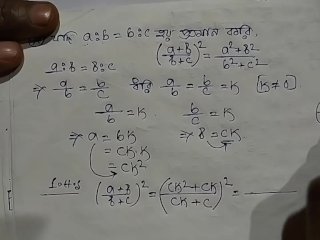 যদি a:b = b:c হয় প্রমাণ করি,
(a+b/b+c)² = a²+b²/b²+c²
a:b = b:c
⇒ a/b = b/c ধরি a/b = b/c = K [K≠0]
a/b = K b/c = K
⇒ a = bK ⇒ b = cK
= cK.K
= cK²
L.H.S (a+b/b+c)² = (cK²+cK/cK+c)² =